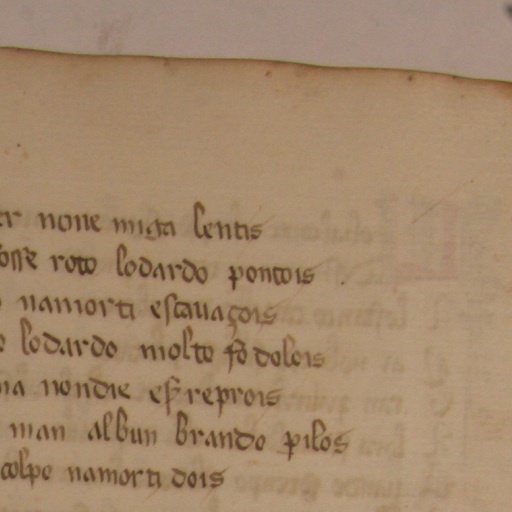 er none miga lentis
osse roto lodardo pontois
namorti escauaçois
lodardo molto fo dolois
na nondie esser reprois
man albun brando pilos
colpo namorti dois